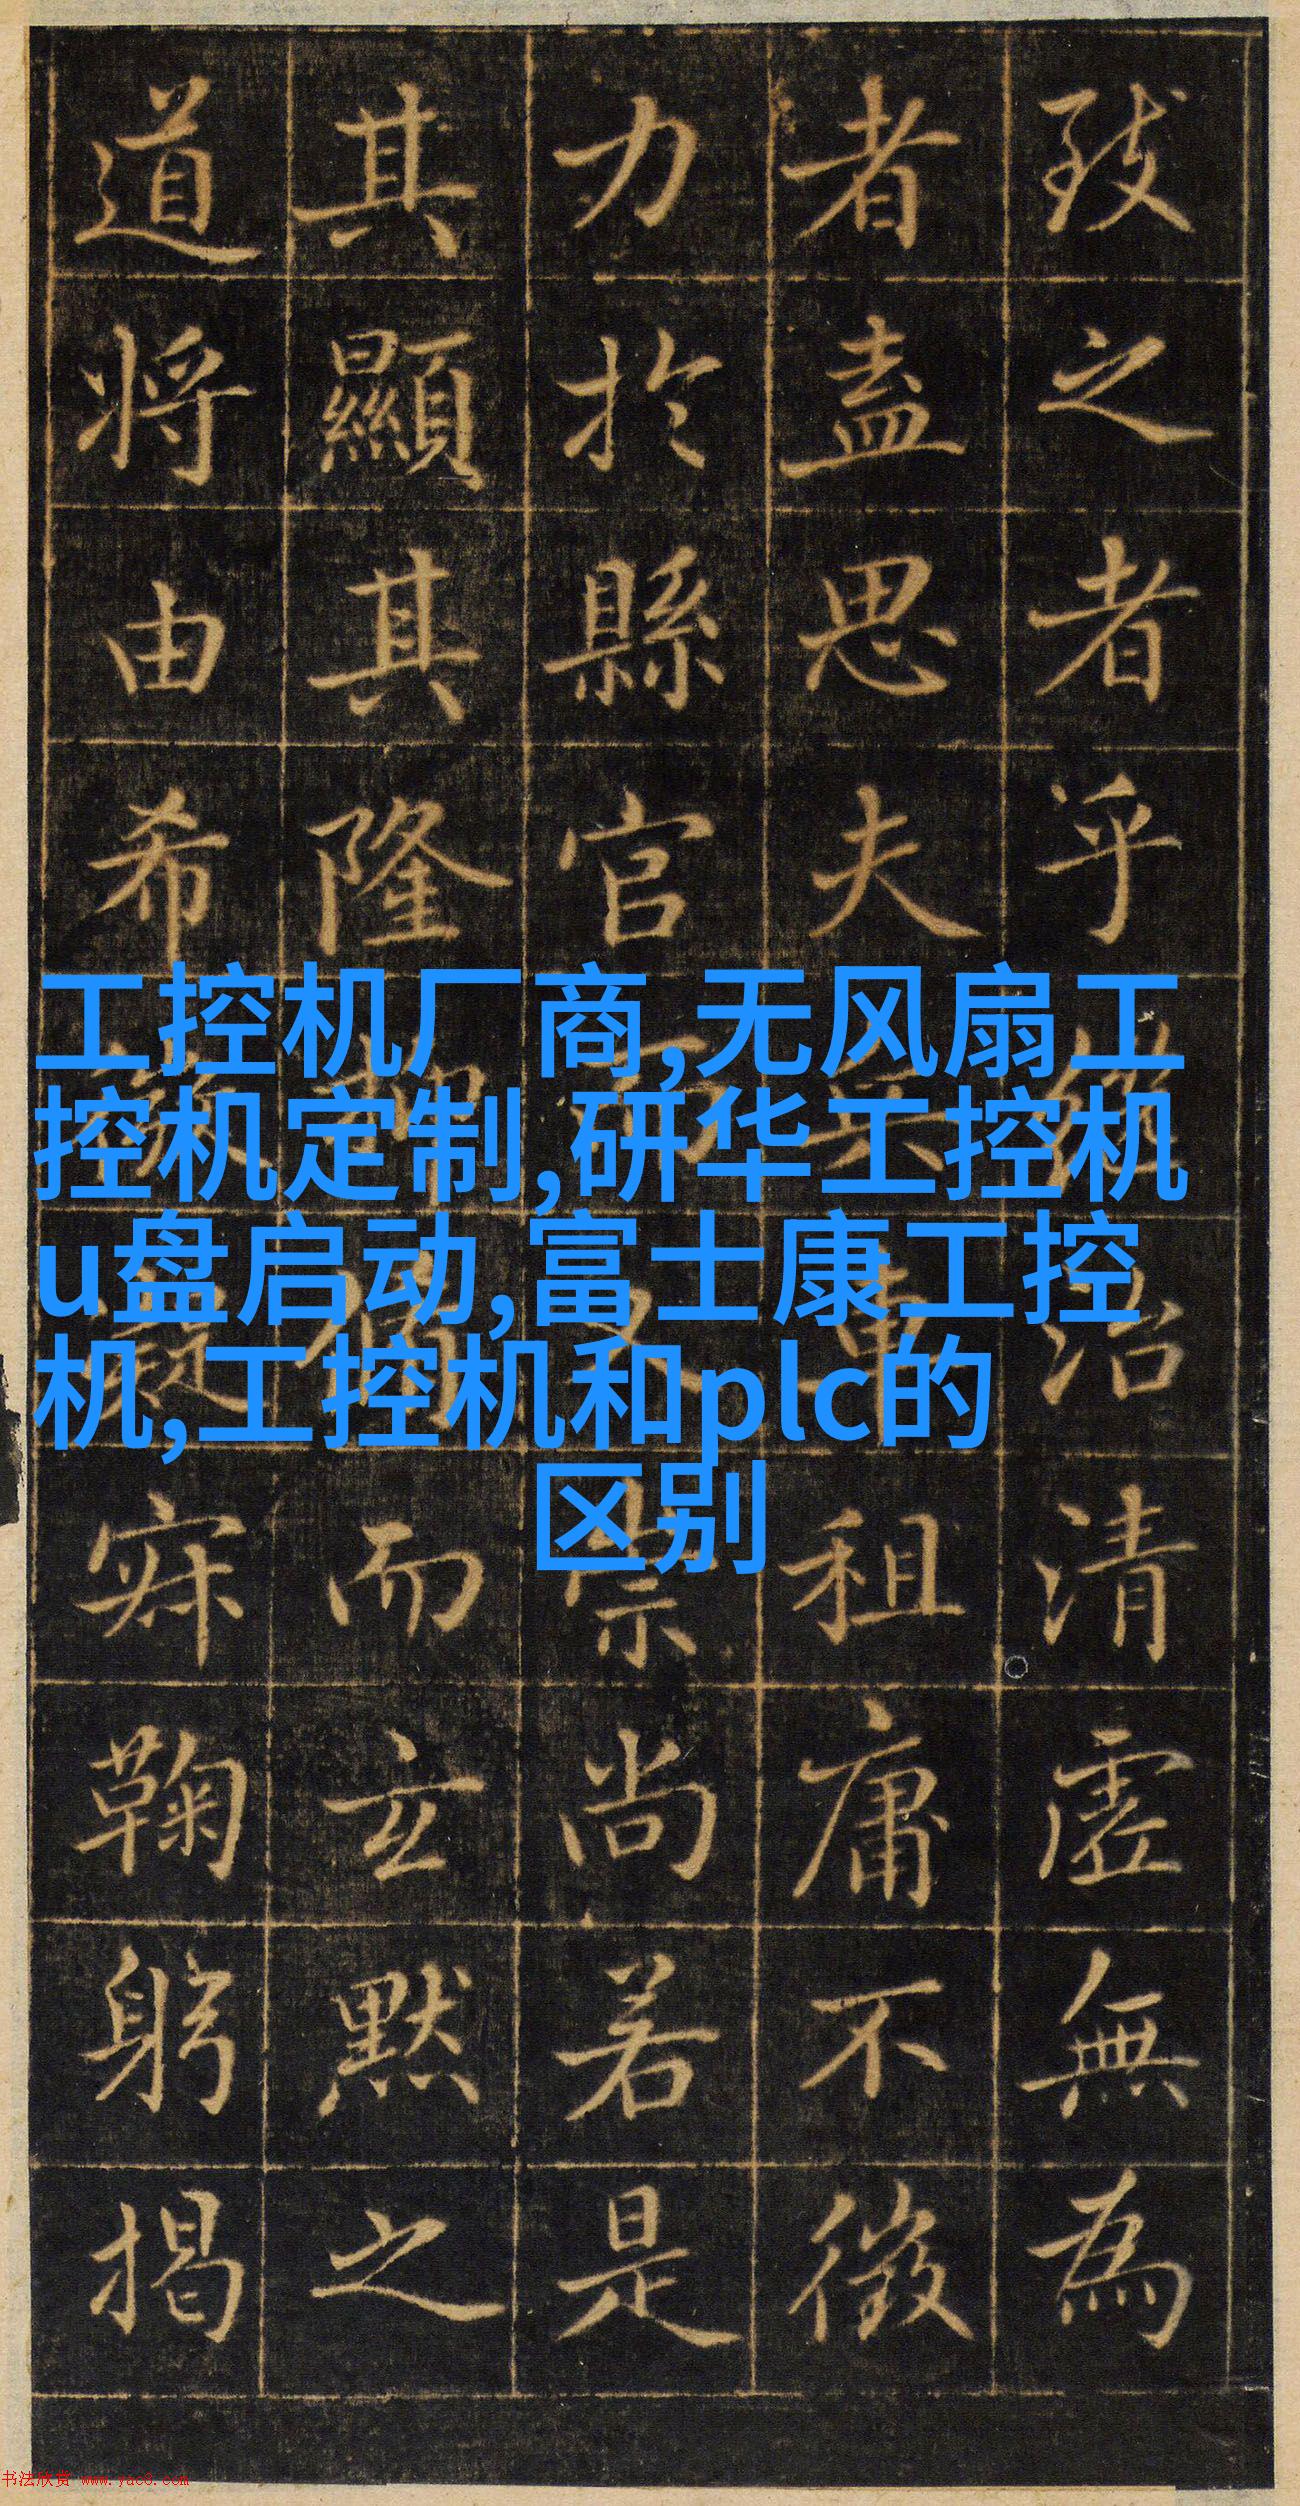 致之者乎治清虛無為
者盡思夫兵車租庸不徵
力於縣官而又崇尚若是
其顯其隆而玄默之
道將由希凝寂鞠躬揭
工控机厂商,无风扇工
控机定制,研华工控机
u盘启动,富士康工控
机,工控机和plc的
区别
书法欣赏 www.yac8.com